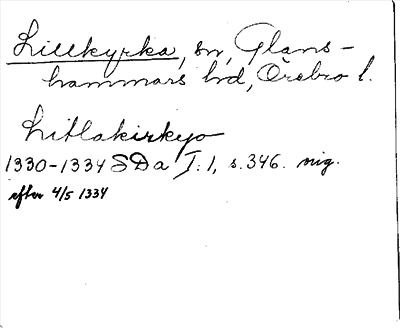 Lillkyrka, sn, Glans-
hammars hd, Örebro l.
Litlakirkyo
1330-1334 SDa I:1, s. 346. nig.
efter 4/5 1334